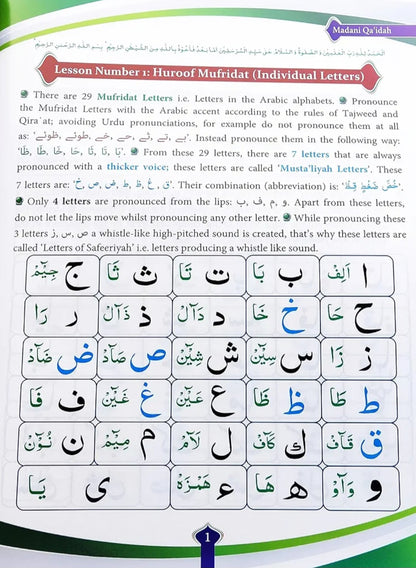 Madani Qa'idah
اَلْحَمْدُ لِلّٰهِ رَبِّ الْعٰلَمِيْنَ وَ الصَّلٰوةُ وَ السَّلَامُ عَلٰى سَيِّدِ الْمُرْسَلِيْنَ اَمَّا بَعْدُ فَاَعُوْذُ بِاللّٰهِ مِنَ الشَّيْطٰنِ الرَّجِيْمِ ؕ بِسْمِ اللّٰهِ الرَّحْمٰنِ الرَّحِيْمِ ؕ
Lesson Number 1: Huroof Mufridat (Individual Letters)
There are 29 Mufridat Letters i.e. Letters in the Arabic alphabets. Pronounce
the Mufridat Letters with the Arabic accent according to the rules of Tajweed and
Qira`at; avoiding Urdu pronunciations, for example do not pronounce them all
as: 'بے, تے, ثے, حے, خے, طوئے, ظوئے'. Instead pronounce them in the following way:
'بَا, تَا, ثَا, حَا, خَا, طَا, ظَا'. From these 29 letters, there are 7 letters that are always
pronounced with a thicker voice; these letters are called 'Musta'liyah Letters'. These
7 letters are: 'خ, ص, ض, ط, ظ, غ, ق'. Their combination (abbreviation) is: 'خُصَّ ضَغْطٍ قِظْ'.
Only 4 letters are pronounced from the lips: ب, ف, م, و. Apart from these letters,
do not let the lips move whilst pronouncing any other letter. While pronouncing these
3 letters ز, س, ص a whistle-like high-pitched sound is created, that's why these letters are
called 'Letters of Safeeriyah' i.e. letters producing a whistle like sound.
ا اَلِفْ ب بَا ت تَا ث ثَا ج جِيْمْ
ح حَا خ خَا د دَالْ ذ ذَالْ ر رَا
ز زَا س سِيْنْ ش شِيْنْ ص صَادْ ض ضَادْ
ط طَا ظ ظَا ع عَيْنْ غ غَيْنْ ف فَا
ق قَافْ ك كَافْ ل لَامْ م مِيْمْ ن نُوْنْ
و وَاوْ ه هَا ء هَمْزَهْ ى يَا
1